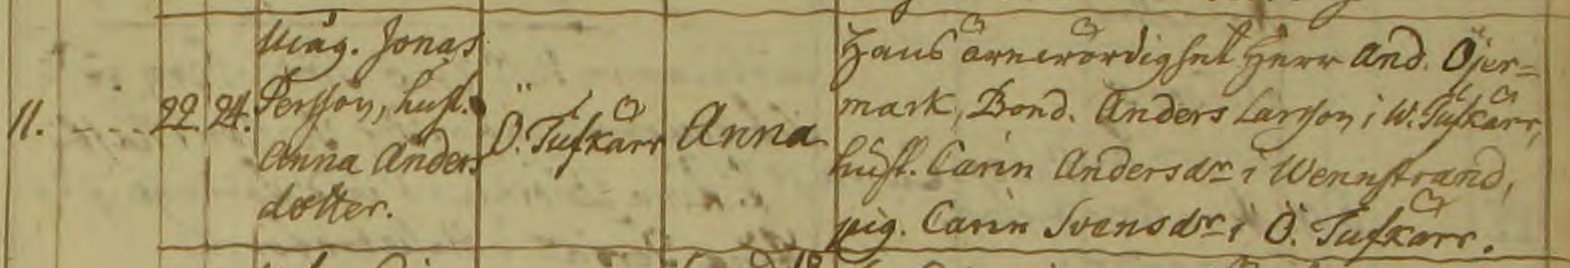 Måg. Jonas
Persson, hust.
Anna Anders
dotter.
11. 22. 24. Ö. Tufkärr Anna
Hans ärewördighet Herr And. Öjer=
mark, Bond. Anders Larsson i W. Tufkärr,
hust. Carin Andersdr i Wennstrand,
pig. Carin Svensdr i Ö. Tufkärr.